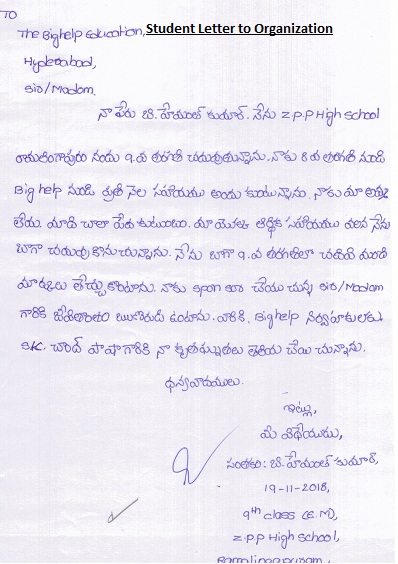 TO
The Bighelp Education, Student Letter to Organization
Hyderabad,
Sir/Madam.
నా పేరు బి.హేమంత్ కుమార్. నేను Z.P.P High school
రామలింగాపురం నందు 9.వ తరగతి చదువుతున్నాను. నాకు 8వ తరగతి నుండి
Big help నుండి ప్రతి నెల సహాయము అందు కుంటున్నాను. నాకు మా అమ్మ
లేదు. మాది చాలా పేద కుటుంబం. మీ యొక్క ఆర్థిక సహాయము వలన నేను
బాగా చదువు కొనుచున్నాను. నేను బాగా 9.వ తరగతిలో చదివి మంచి
మార్కులు తెచ్చుకొంటాను. నాకు sponsor చేయు చున్న sir/Madam
గారికి జీవితాంతం ఋణపడి ఉంటాను. వారికి, Big help నిర్వాహకులకు
SK. చాంద్ పాషా గారికి నా కృతజ్ఞతలు తెలియ చేయు చున్నాను.
ధన్యవాదములు.
ఇట్లు,
మీ విధేయుడు,
సంతకం: బి.హేమంత్ కుమార్,
19-11-2018,
9th class (E.M),
Z.P.P High school,
Ramalingapuram,